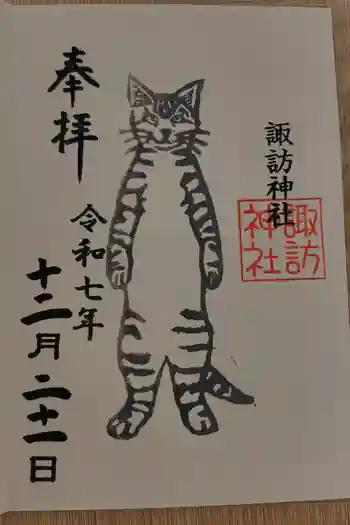 奉拝
諏訪神社
諏訪
神社
令和七年
十二月二十一日